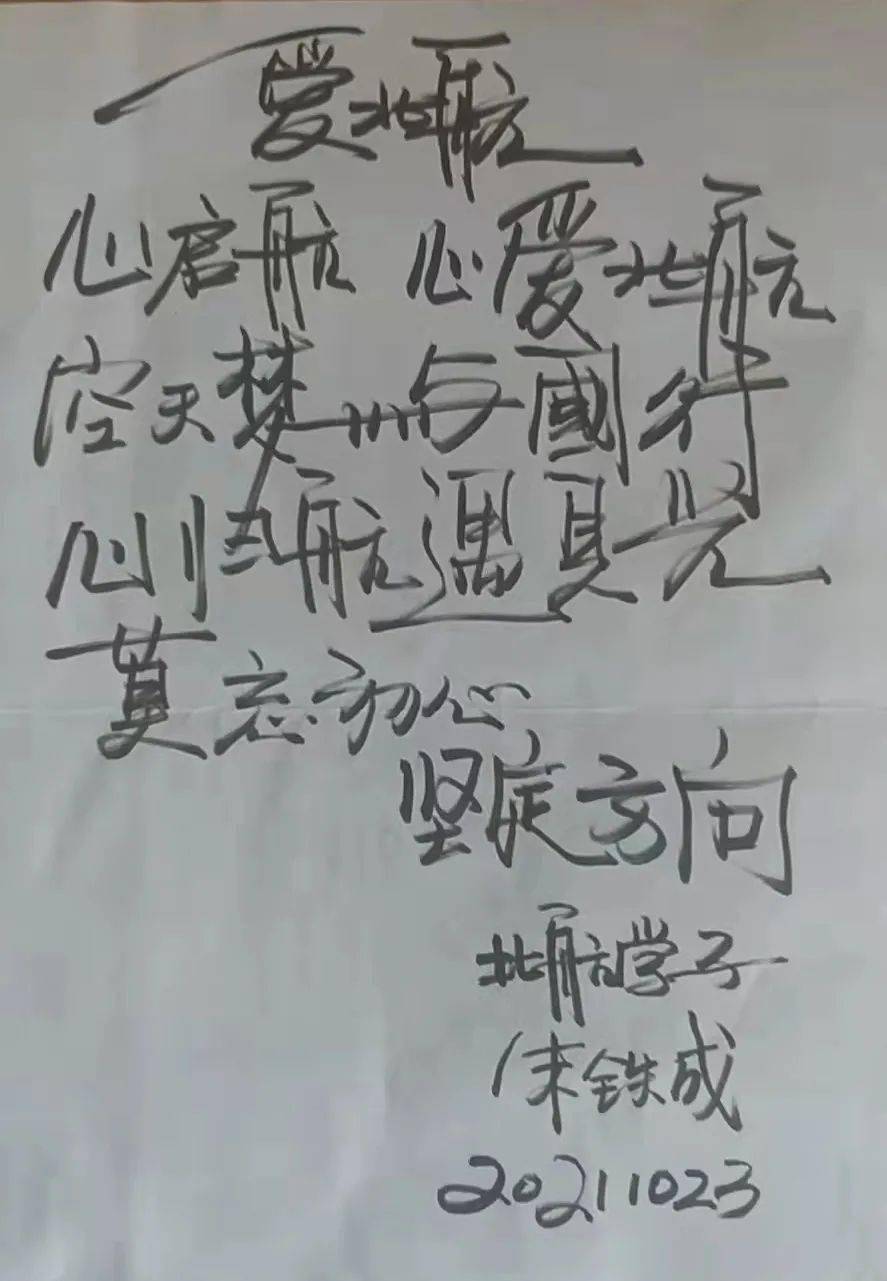 爱北航
心启航 心爱北航
空天梦 与國行
心归航遇見光
莫忘初心
坚定方向
北航学子
宋铁成
20211023